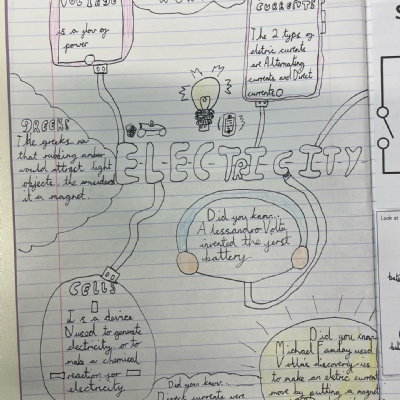 VOLTAGE
is a flow of
power
CURRENTS
The 2 typs of
eletric currents
are Alternating
currents and Direct
currents
GREEKS
The greeks saw
that rubbing amber
would attract light
objects. the
it a magnet.
E-L-E-C-TRICITY
Did you know...
Alessandro Volta
invented the first
battery
CELLS
I is a device
used to generate
electricity, or to
make a chemical
reaction for
electricity
Did you know
Michael Faraday used
Voltas discoverys
to make an eletric current
move by putting a magnet
Did you know...
Direct currents were
Look at